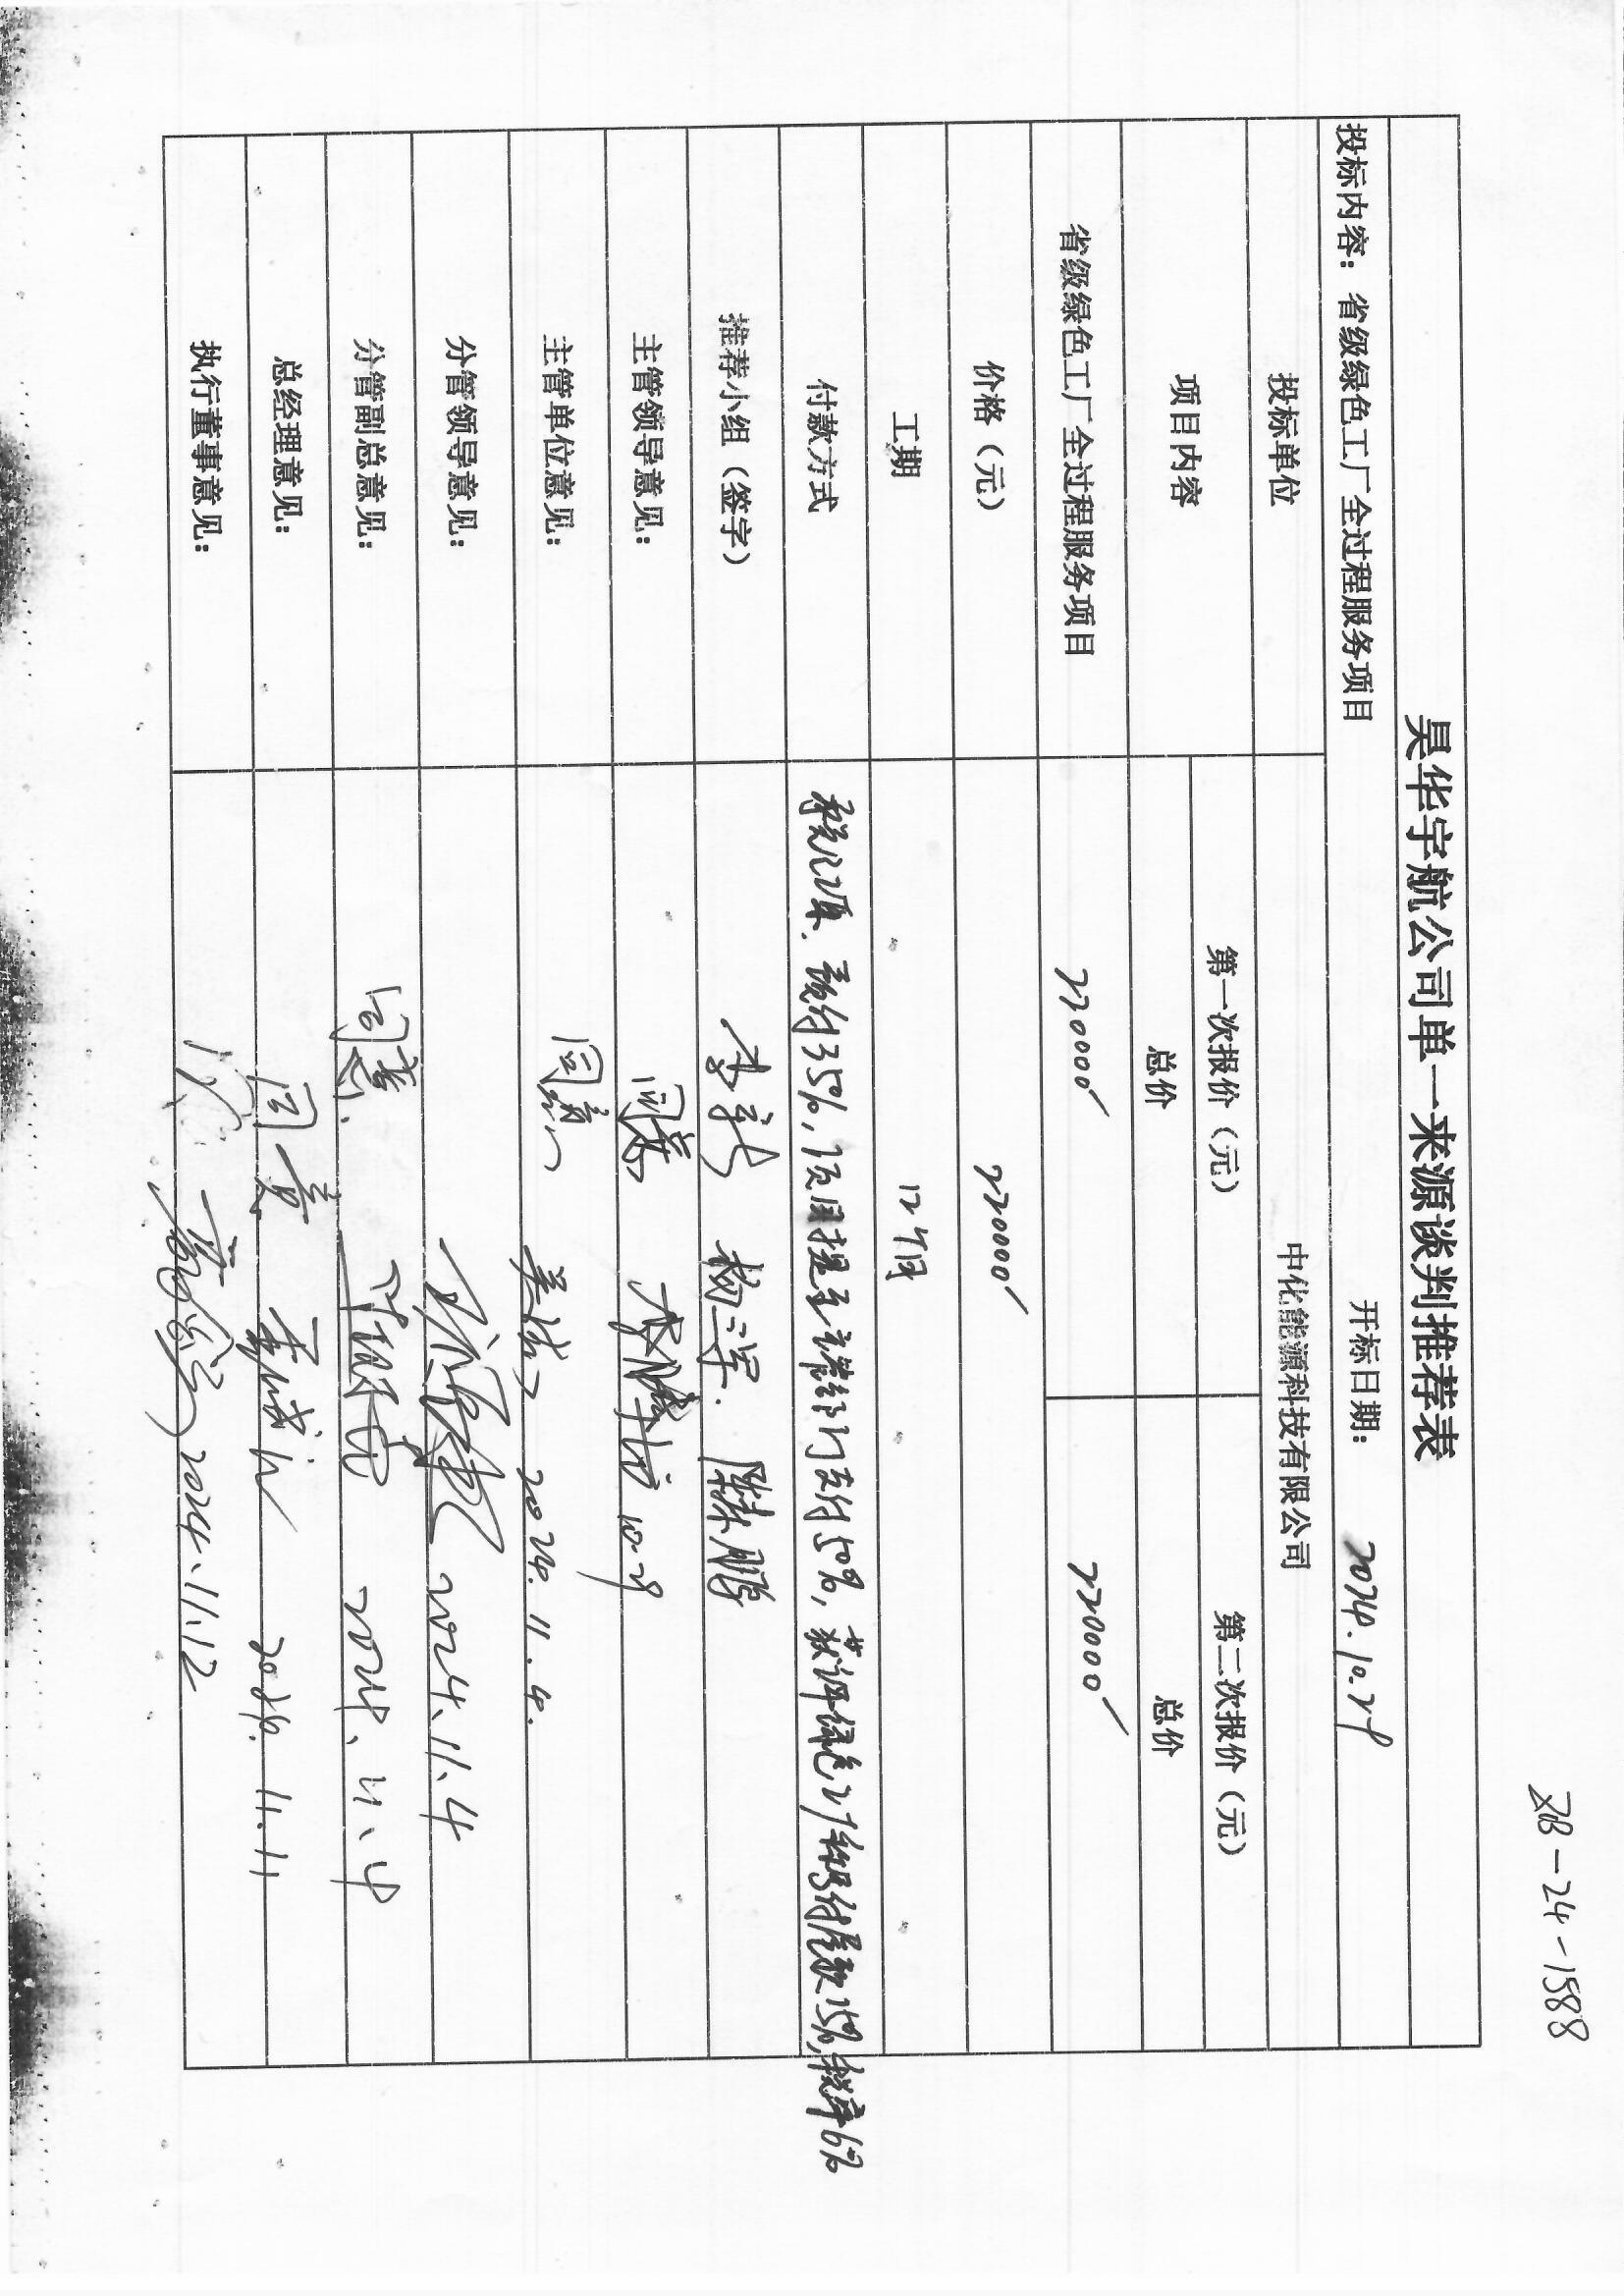 ZB-24-1588
昊华宇航公司单一来源谈判推荐表
投标内容：省级绿色工厂全过程服务项目 开标日期： 2024.10.29
投标单位 中化能源科技有限公司
项目内容 第一次报价（元） 第二次报价（元）
总价 总价
省级绿色工厂全过程服务项目 220000 220000
价格（元） 220000
工期 12个月
付款方式 预付35%，项目提至主管部门支付50%，获评绿色工厂称号付尾款15%，税率6%
推荐小组（签字） 陈鹏
主管领导意见： 同意 10.29
主管单位意见： 同意 2024.11.4.
分管领导意见： 2024.11.4
分管副总意见： 同意. 2024.11.4
总经理意见： 同意 2024.11.11
执行董事意见： 2024.11.12